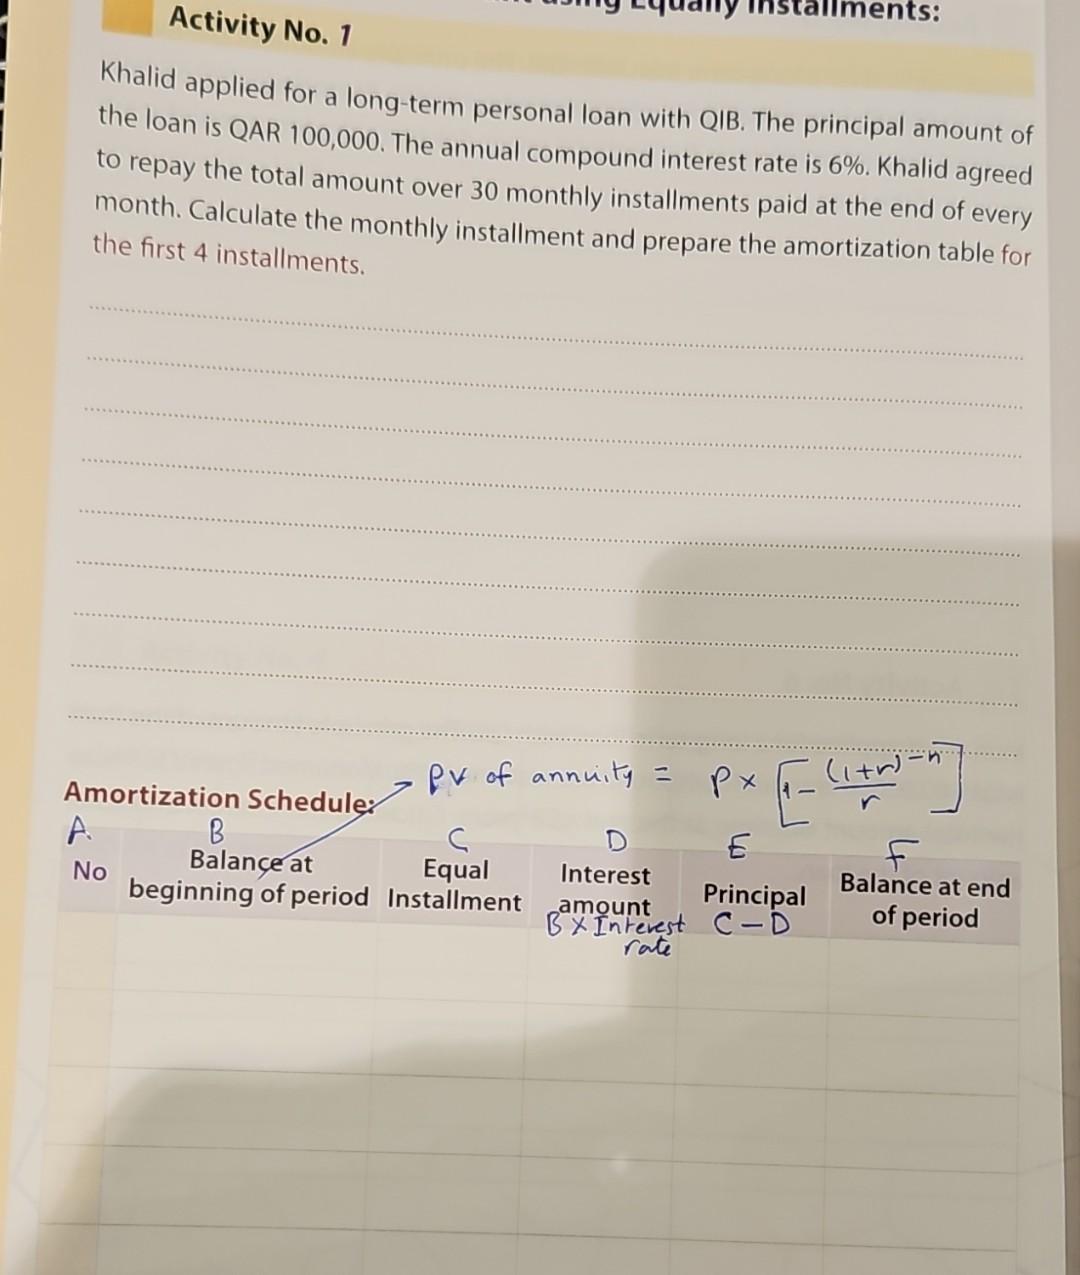 Equally Installments:
Activity No. 1
Khalid applied for a long-term personal loan with QIB. The principal amount of
the loan is QAR 100,000. The annual compound interest rate is 6%. Khalid agreed
to repay the total amount over 30 monthly installments paid at the end of every
month. Calculate the monthly installment and prepare the amortization table for
the first 4 installments.
PV of annuity = P × [1 - (1+r)^-n / r]
Amortization Schedule:
A B C D E F
No Balance at beginning of period Equal Installment Interest amount Principal Balance at end of period
B × Interest rate C - D